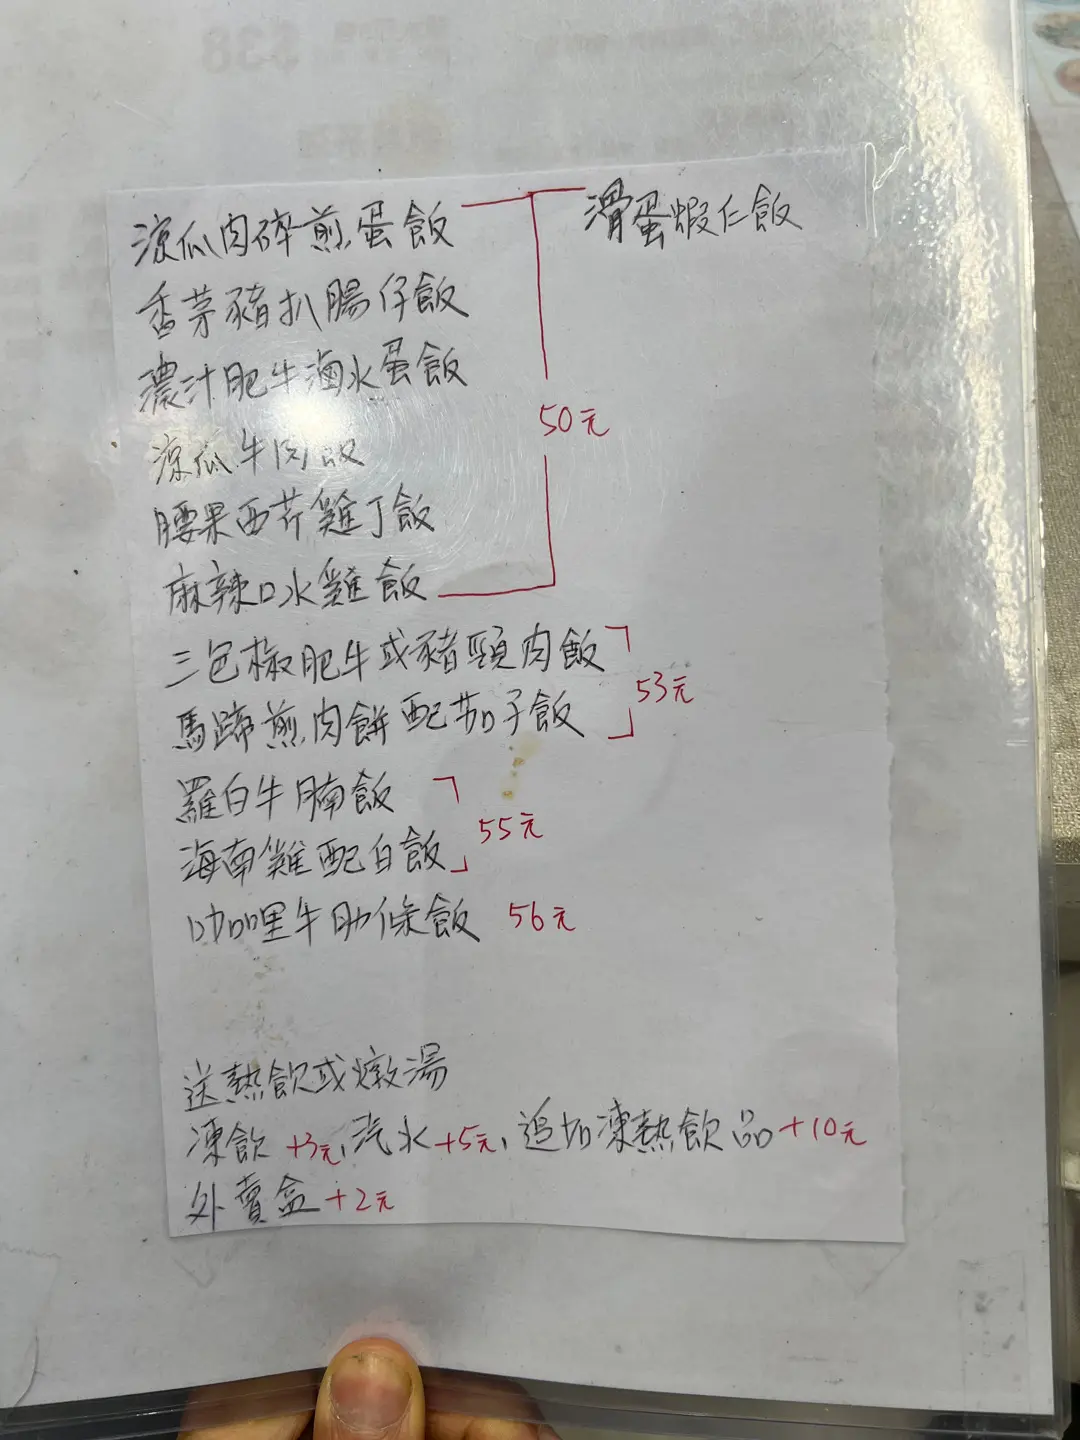 涼瓜肉碎煎蛋飯 滑蛋蝦仁飯
香茅豬扒腸仔飯
濃汁肥牛滷水蛋飯
50元
涼瓜牛肉飯
腰果西芹雞丁飯
麻辣口水雞飯
三色椒肥牛或豬頸肉飯
53元
馬蹄煎肉餅配茄子飯
羅白牛腩飯
55元
海南雞配白飯
咖哩牛肋條飯 56元
送熱飲或燉湯
凍飲+3元, 汽水+5元, 追加凍熱飲品+10元
外賣盒+2元